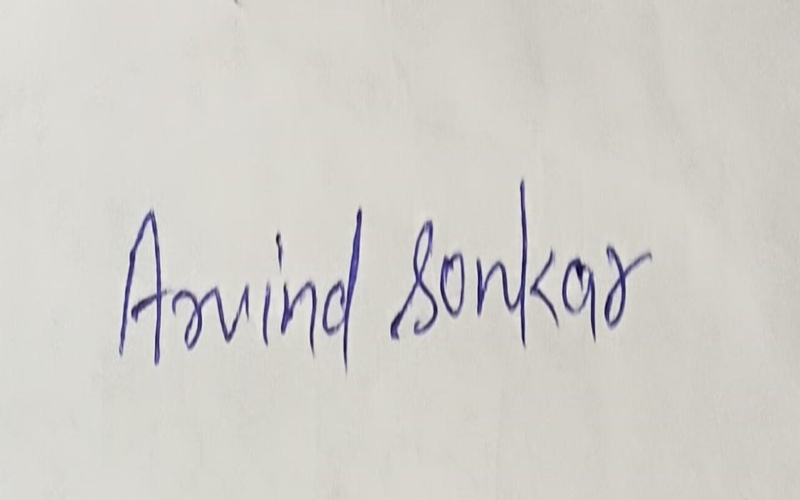 Arvind Sonkar